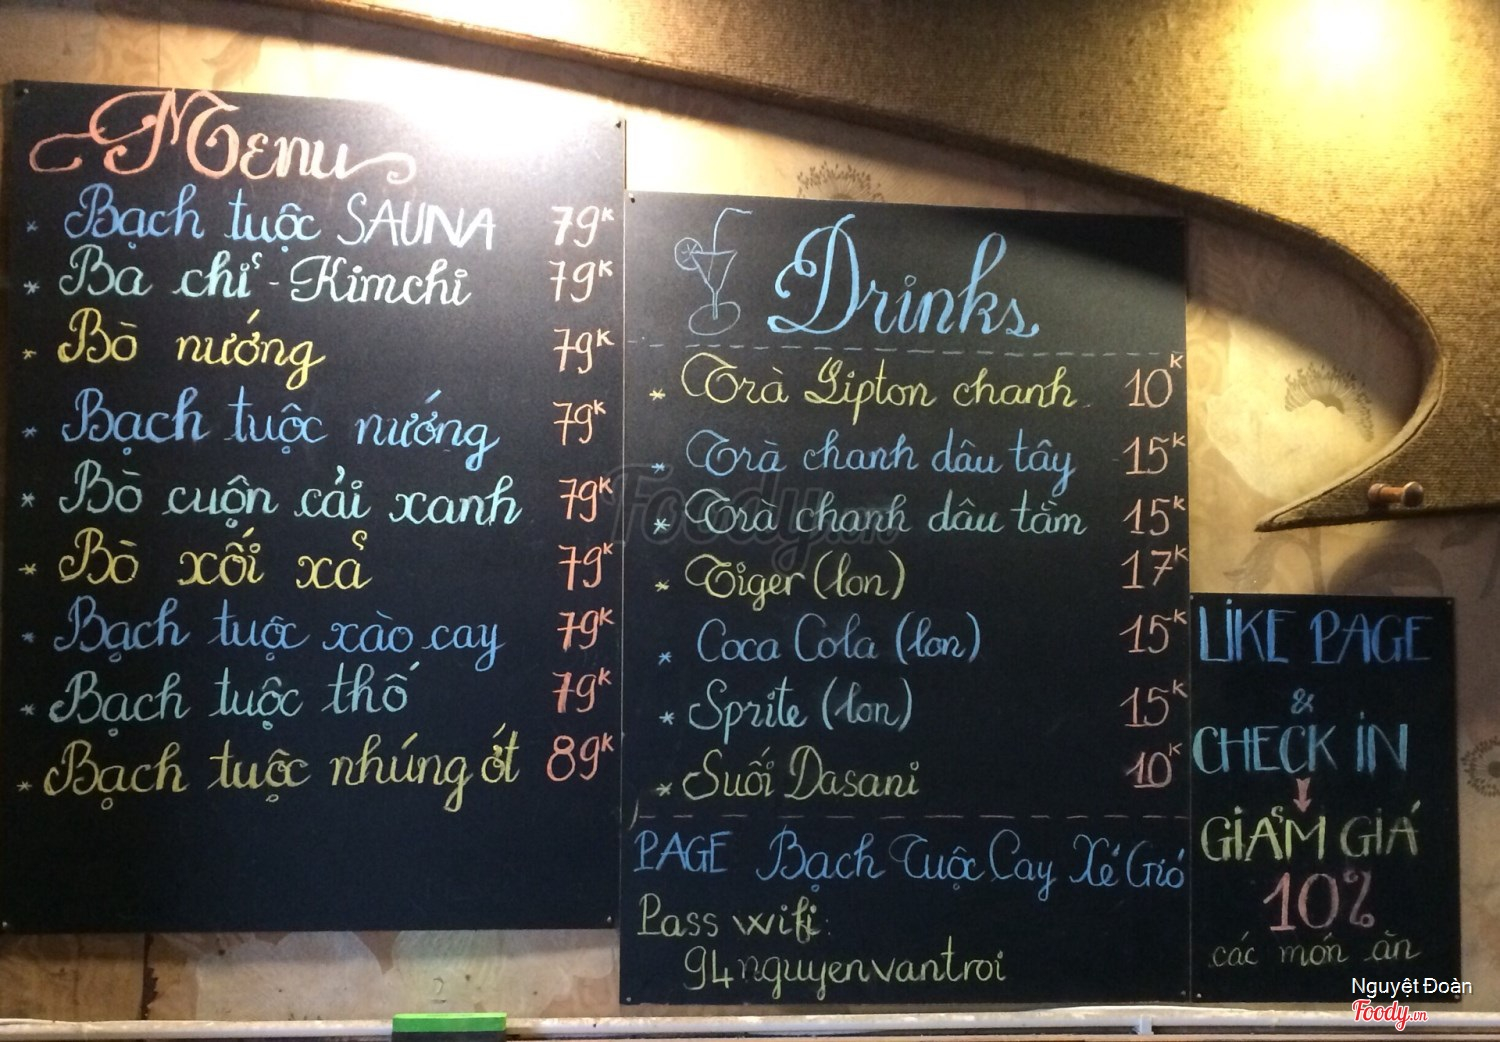 Menu
* Bạch tuộc SAUNA 79K
* Ba chỉ - Kimchi 79K
* Bò nướng 79K
* Bạch tuộc nướng 79K
* Bò cuộn cải xanh 79K
* Bò xối xả 79K
* Bạch tuộc xào cay 79K
* Bạch tuộc thố 79K
* Bạch tuộc nhúng ớt 89K
Drinks
* Trà Lipton chanh 10K
* Trà chanh dâu tây 15K
* Trà chanh dâu tằm 15K
* Tiger (lon) 17K
* Coca Cola (lon) 15K
* Sprite (lon) 15K
* Suối Dasani 10K
PAGE Bạch Tuộc Cay Xé Gió
Pass wifi:
94nguyenvantroi
LIKE PAGE
&
CHECK IN
GIẢM GIÁ
10%
các món ăn
Foody.vn
Nguyệt Đoàn
Foody.vn